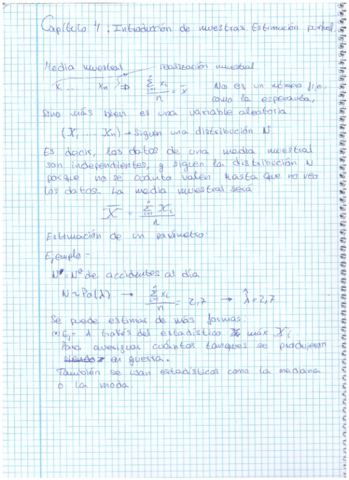 Capítulo 4. Introducción de muestras. Estimación puntual.
Media muestral realización muestral
x₁ ... xₙ ⇒ Σxᵢ/n = x̄ No es un número fijo,
como la esperanza,
sino más bien es una variable aleatoria.
(X₁ ..... Xₙ) → Siguen una distribución N
Es decir, los datos de una media muestral
son independientes, y siguen la distribución N
porque no se cuánto valen hasta que no veo
los datos. La media muestral será
X̄ = Σxᵢ/n
Estimación de un parámetro
Ejemplo -
N = Nº de accidentes al día
N ~ Po(λ) → Σxᵢ/n = 2,7 → λ̂ = 2,7
Se puede estimar de más formas
Ej - A través del estadístico máx Xᵢ
Para averiguar cuántos tanques se producen
en guerra.
También se usan estadísticos como la mediana
o la moda.